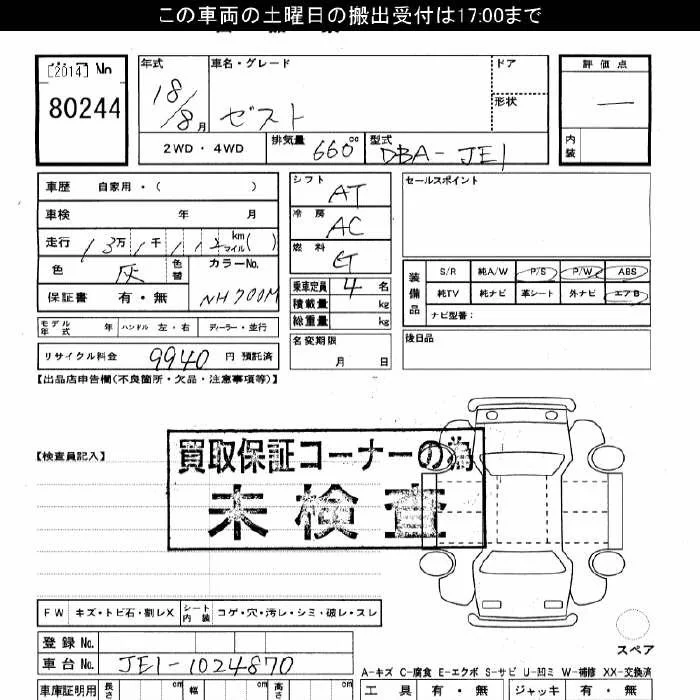 この車両の土曜日の搬出受付は17:00まで
[2014] No
80244
年式
18/8月
車名・グレード
ゼスト
ドア
形状
評価点
―
内装
2WD・4WD
排気量 660cc
型式 DBA-JE1
車歴 自家用・( )
車検 年 月
走行 13万1千112km マイル( )
色 灰 色替 カラーNo. NH700M
保証書 有・無
モデル年式 年 ハンドル 左・右 ディーラー・並行
リサイクル料金 9940 円 預託済
シフト AT
冷房 AC
燃料
乗車定員 4 名
積載量 kg
総重量 kg
名変期限 月 日
セールスポイント
装備品
S/R 純A/W P/S P/W ABS
純TV 純ナビ 革シート 外ナビ エアB
ナビ型番:
後日品
【出品店申告欄(不良箇所・欠品・注意事項等)】
【検査員記入】
買取保証コーナーの為
未検査
FW キズ・トビ石・割レX シート内装 コゲ・穴・汚レ・シミ・破レ・スレ
登録No.
車台No. JE1-1024870
スペア
A-キズ C-腐食 E-エクボ S-サビ U-凹ミ W-補修 XX-交換済
車庫証明用 長さ cm 幅 cm 高さ cm
工具 有・無 ジャッキ 有・無